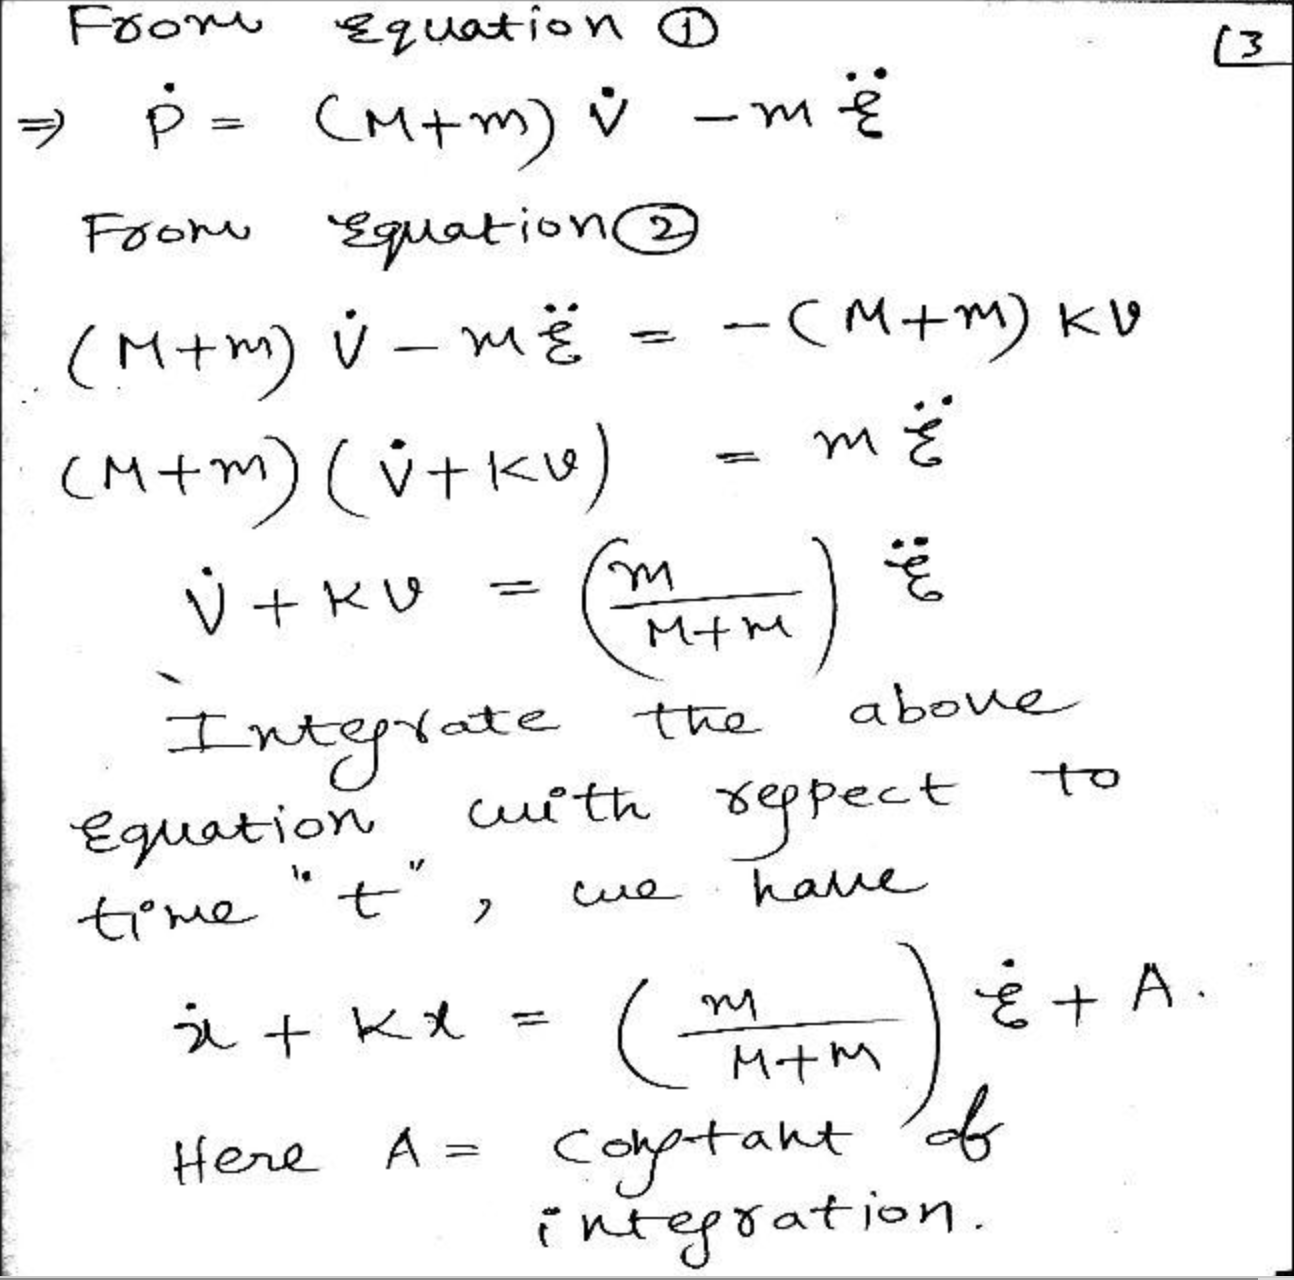 From Equation ①
(3
⇒ Ṗ = (M+m) v̇ - m ξ̈
From Equation ②
(M+m) v̇ - m ξ̈ = -(M+m) Kv
(M+m) (v̇ + Kv) = m ξ̈
v̇ + Kv = (m/(M+m)) ξ̈
Integrate the above
Equation with respect to
time "t", we have
ẋ + Kx = (m/(M+m)) ξ̇ + A.
Here A = constant of
integration.